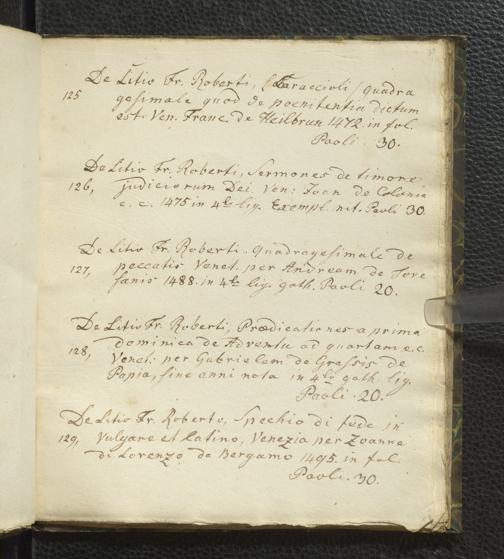 De Litio Fr. Roberti, (Caraccioli) quadra
125 gesimale quod de poenitentia dictum
est. Ven. Franc. de Heilbrun 1472. in fol.
Paoli. 30.
De Litio Fr. Roberti, Sermones de timore
126, judiciorum Dei. Ven: Joan de Colonia
e. c. 1475 in 4to lig. Exempl. nit. Paoli 30.
De Litio Fr. Roberti. Quadragesimale de
127, peccatis Venet. per Andream de Tore
sanis 1488. in 4to lig. goth. Paoli 20.
De Litio Fr. Roberti, Prædicationes a prima
128, dominica de Adventu ad quartam e.c.
Venet. per Gabrielem de Grassis de
Papia, sine anni nota in 4to goth. lig.
Paoli. 20.
De Litio Fr. Roberto, Specchio di fede in
129, Vulgare et Latino, Venezia per Zoanne
di Lorenzo da Bergamo 1495. in fol.
Paoli. 30.